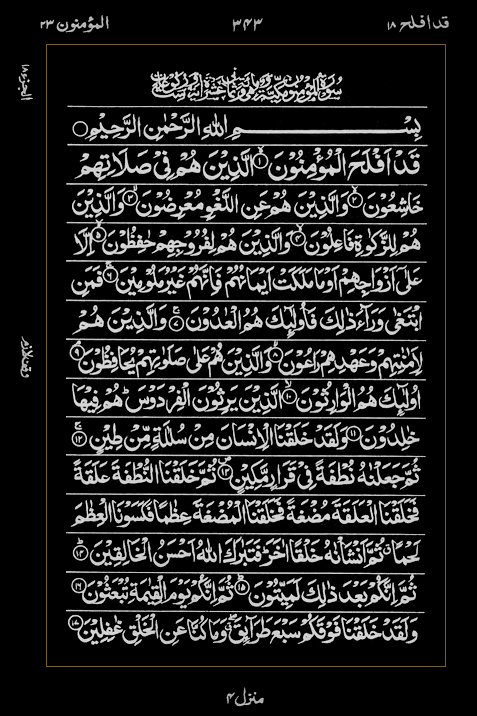 قد افلح ۱۸
۳۴۳
المؤمنون ۲۳
الجزء ۱۸
بِسْمِ اللهِ الرَّحْمٰنِ الرَّحِيْمِ
قَدْ اَفْلَحَ الْمُؤْمِنُوْنَ ۱ الَّذِيْنَ هُمْ فِيْ صَلَاتِهِمْ
خَاشِعُوْنَ ۲ وَالَّذِيْنَ هُمْ عَنِ اللَّغْوِ مُعْرِضُوْنَ ۳ وَالَّذِيْنَ
هُمْ لِلزَّكٰوةِ فَاعِلُوْنَ ۴ وَالَّذِيْنَ هُمْ لِفُرُوْجِهِمْ حٰفِظُوْنَ ۵ اِلَّا
عَلٰى اَزْوَاجِهِمْ اَوْ مَا مَلَكَتْ اَيْمَانُهُمْ فَاِنَّهُمْ غَيْرُ مَلُوْمِيْنَ ۶ فَمَنِ
ابْتَغٰى وَرَآءَ ذٰلِكَ فَاُولٰٓئِكَ هُمُ الْعٰدُوْنَ ۷ وَالَّذِيْنَ هُمْ
لِاَمٰنٰتِهِمْ وَعَهْدِهِمْ رٰعُوْنَ ۸ وَالَّذِيْنَ هُمْ عَلٰى صَلَوٰتِهِمْ يُحَافِظُوْنَ ۹
اُولٰٓئِكَ هُمُ الْوَارِثُوْنَ ۱۰ الَّذِيْنَ يَرِثُوْنَ الْفِرْدَوْسَ هُمْ فِيْهَا
خٰلِدُوْنَ ۱۱ وَلَقَدْ خَلَقْنَا الْاِنْسَانَ مِنْ سُلٰلَةٍ مِّنْ طِيْنٍ ۱۲
ثُمَّ جَعَلْنٰهُ نُطْفَةً فِيْ قَرَارٍ مَّكِيْنٍ ۱۳ ثُمَّ خَلَقْنَا النُّطْفَةَ عَلَقَةً
فَخَلَقْنَا الْعَلَقَةَ مُضْغَةً فَخَلَقْنَا الْمُضْغَةَ عِظٰمًا فَكَسَوْنَا الْعِظٰمَ
لَحْمًا ثُمَّ اَنْشَاْنٰهُ خَلْقًا اٰخَرَ فَتَبٰرَكَ اللهُ اَحْسَنُ الْخَالِقِيْنَ ۱۴
ثُمَّ اِنَّكُمْ بَعْدَ ذٰلِكَ لَمَيِّتُوْنَ ۱۵ ثُمَّ اِنَّكُمْ يَوْمَ الْقِيٰمَةِ تُبْعَثُوْنَ ۱۶
وَلَقَدْ خَلَقْنَا فَوْقَكُمْ سَبْعَ طَرَآئِقَ وَمَا كُنَّا عَنِ الْخَلْقِ غٰفِلِيْنَ ۱۷
منزل ۴